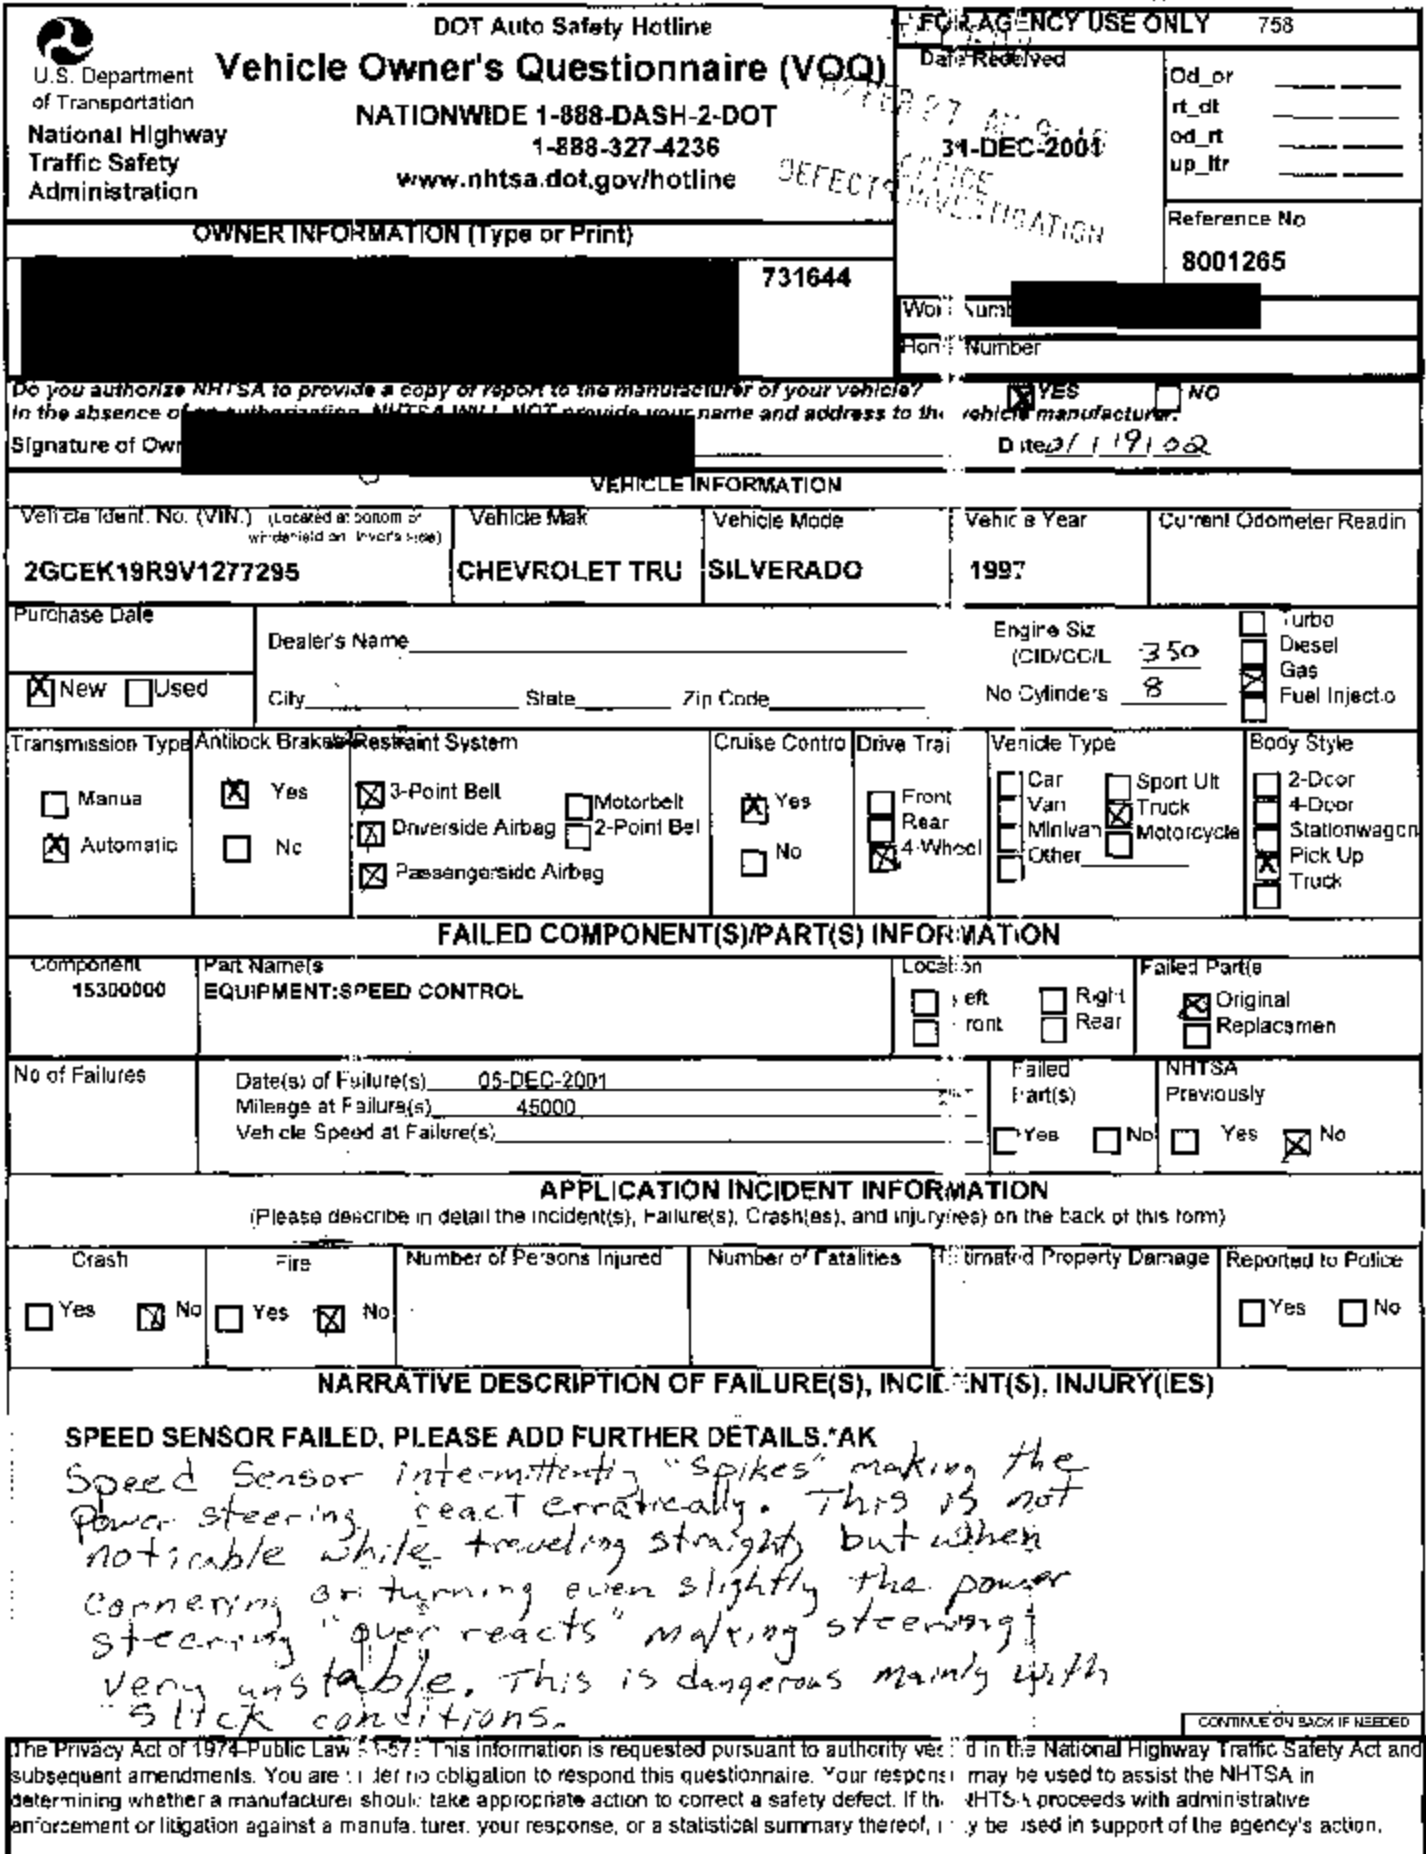 DOT Auto Safety Hotline
Vehicle Owner's Questionnaire (VOQ)
NATIONWIDE 1-888-DASH-2-DOT
1-888-327-4236
www.nhtsa.dot.gov/hotline
U.S. Department
of Transportation
National Highway
Traffic Safety
Administration
FOR AGENCY USE ONLY 758
Date Received
31-DEC-2001
OFFICE
DEFECTS INVESTIGATION
Od_or
rt_dt
od_rt
up_ltr
Reference No
8001265
OWNER INFORMATION (Type or Print)
731644
Number
Do you authorize NHTSA to provide a copy of report to the manufacturer of your vehicle? YES NO
In the absence of an authorization, NHTSA WILL NOT provide your name and address to the vehicle manufacturer.
Signature of Own
VEHICLE INFORMATION
Vehicle Ident. No. (VIN.) (Located at bottom of
windshield on driver's side)
2GCEK19R9V1277295
Vehicle Mak
CHEVROLET TRU
Vehicle Mode
SILVERADO
Vehicle Year
1997
Current Odometer Readin
Purchase Date
New Used
Dealer's Name
City State Zip Code
Engine Siz
(CID/CC/L 350
No Cylinders 8
Turbo
Diesel
Gas
Fuel Injectio
Transmission Type
Manua
Automatic
Antilock Brakes
Yes
No
Restraint System
3-Point Belt
Driverside Airbag
Passengerside Airbag
Motorbelt
2-Point Bel
Cruise Contro
Yes
No
Drive Trai
Front
Rear
4-Wheel
Vehicle Type
Car
Van
Minivan
Other
Sport Ult
Truck
Motorcycle
Body Style
2-Door
4-Door
Stationwagon
Pick Up
Truck
FAILED COMPONENT(S)/PART(S) INFORMATION
Component
15300000
Part Name(s
EQUIPMENT:SPEED CONTROL
Location
Left Right
Front Rear
Failed Part(s
Original
Replacemen
No of Failures
Date(s) of Failure(s) 05-DEC-2001
Mileage at Failure(s) 45000
Vehicle Speed at Failure(s)
Failed
Part(s)
Yes No
NHTSA
Previously
Yes No
APPLICATION INCIDENT INFORMATION
(Please describe in detail the incident(s), Failure(s), Crash(es), and injury(ies) on the back of this form)
Crash
Yes No
Fire
Yes No
Number of Persons Injured
Number of Fatalities
Estimated Property Damage
Reported to Police
Yes No
NARRATIVE DESCRIPTION OF FAILURE(S), INCIDENT(S), INJURY(IES)
SPEED SENSOR FAILED, PLEASE ADD FURTHER DETAILS.*AK
Speed Sensor intermittently "spikes" making the
Power steering react erratically. This is not
noticable while traveling straight but when
cornering or turning even slightly the power
steering "over reacts" making steering
very unstable. This is dangerous mainly with
slick conditions.
CONTINUE ON BACK IF NEEDED
The Privacy Act of 1974-Public Law This information is requested pursuant to authority vested in the National Highway Traffic Safety Act and
subsequent amendments. You are under no obligation to respond this questionnaire. Your response may be used to assist the NHTSA in
determining whether a manufacturer should take appropriate action to correct a safety defect. If the NHTSA proceeds with administrative
enforcement or litigation against a manufacturer, your response, or a statistical summary thereof, may be used in support of the agency's action.